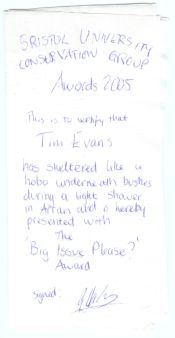 BRISTOL UNIVERSITY
CONSERVATION GROUP
Awards 2005
This is to certify that
Tim Evans
has sheltered like a
hobo underneath bushes
during a light shower
in Arran and is hereby
presented with
The
'Big Issue Please?'
Award
signed: